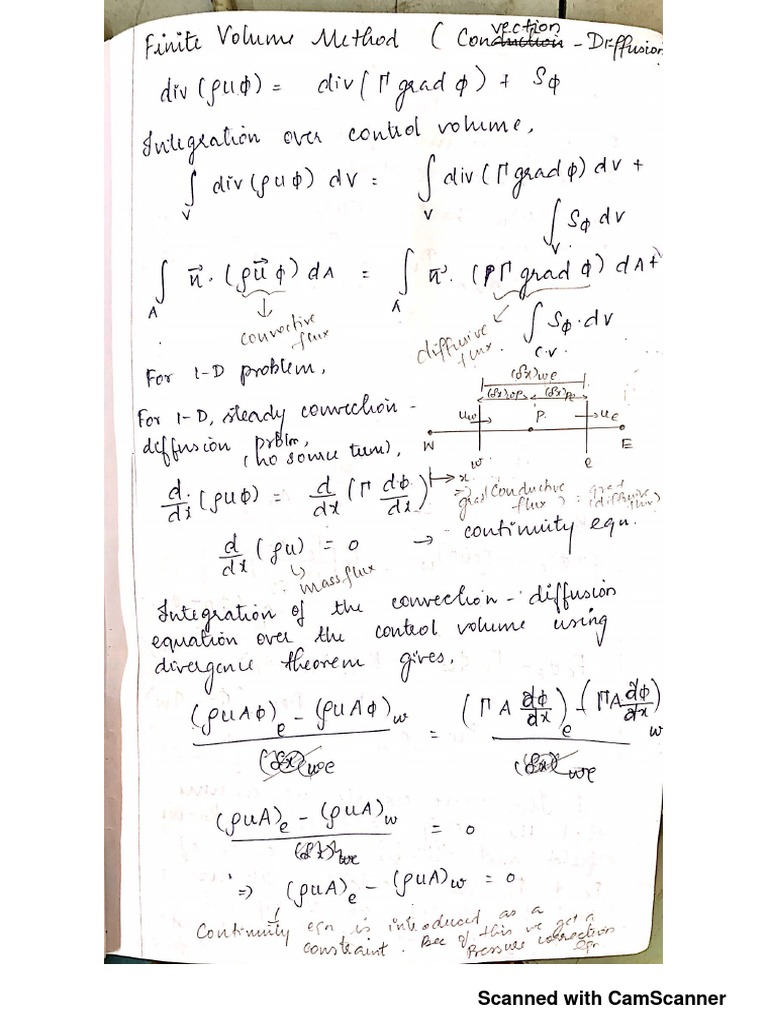 Finite Volume Method (Convection - Diffusion
div(ρuφ) = div(Γ grad φ) + Sφ
Integration over control volume,
∫_V div(ρuφ) dV = ∫_V div(Γ grad φ) dV +
∫_V Sφ dV
∫_A n⃗. (ρu⃗φ) dA = ∫_A n⃗. (ρΓ grad φ) dA +
convective flux
diffusive flux
∫_C.V. Sφ . dV
For 1-D problem,
(δx)we
(δx)wP (δx)Pe
For 1-D, steady convection -
uw P. ue
W E
diffusion prblm,
(no source term),
w e
x
d/dx (ρuφ) = d/dx (Γ dφ/dx)
=> grad(Conductive flux) = grad (diffusive flux)
d/dx (ρu) = 0 → continuity eqn.
mass flux
Integration of the convection - diffusion
equation over the control volume using
divergence theorem gives,
(ρuAφ)e - (ρuAφ)w = (ΓA dφ/dx)e - (ΓA dφ/dx)w
(δx)we (δx)we
(ρuA)e - (ρuA)w / (δx)we = 0
=> (ρuA)e - (ρuA)w = 0
Continuity eqn is introduced as a
constraint. Bec of this we get a
Pressure correction
eqn
Scanned with CamScanner